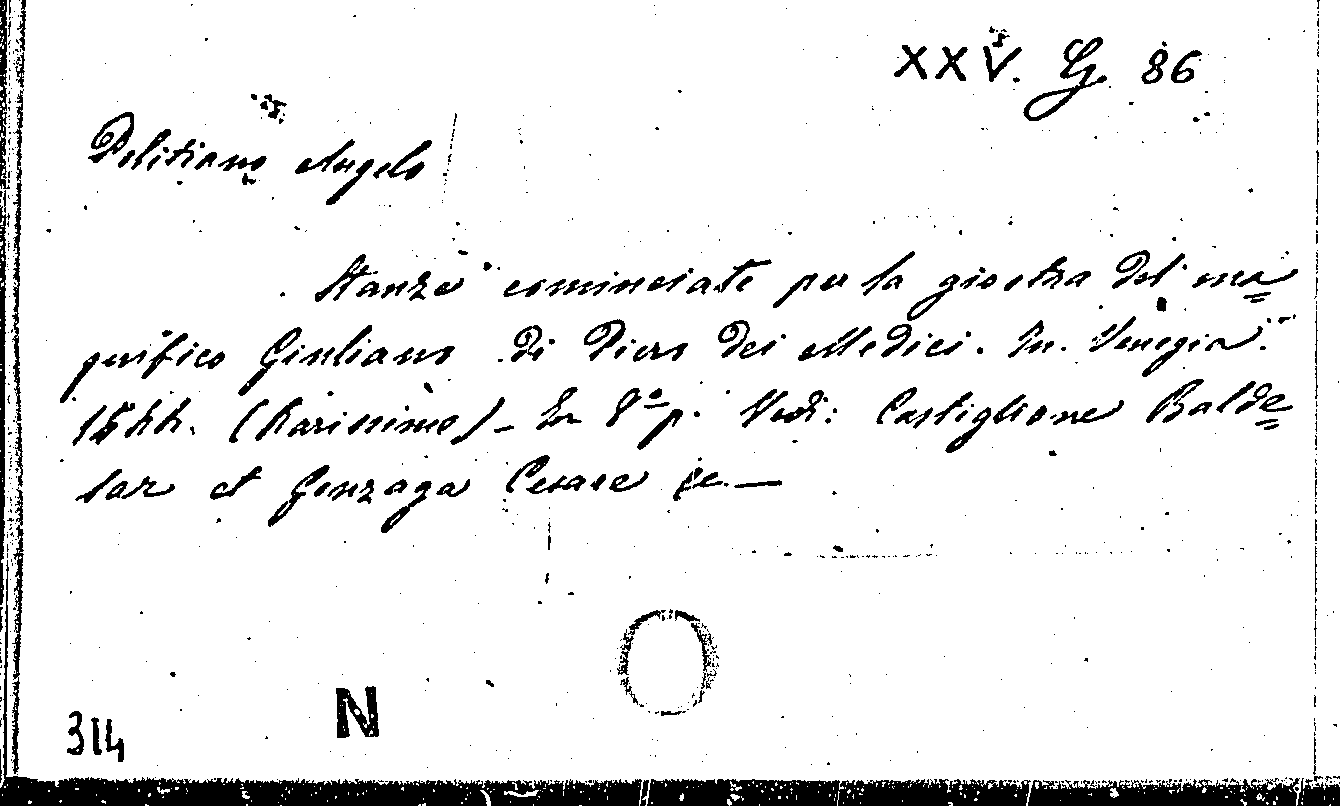 XXV. G. 86
Politiano Angelo
Stanze cominciate per la giostra del ma=
gnifico Giuliano di Piero dei Medici. In Venegia.
1544. (Rarissimo) - In 8º p. Vedi: Castiglione Balde=
sar et Gonzaga Cesare &c. —
N
314